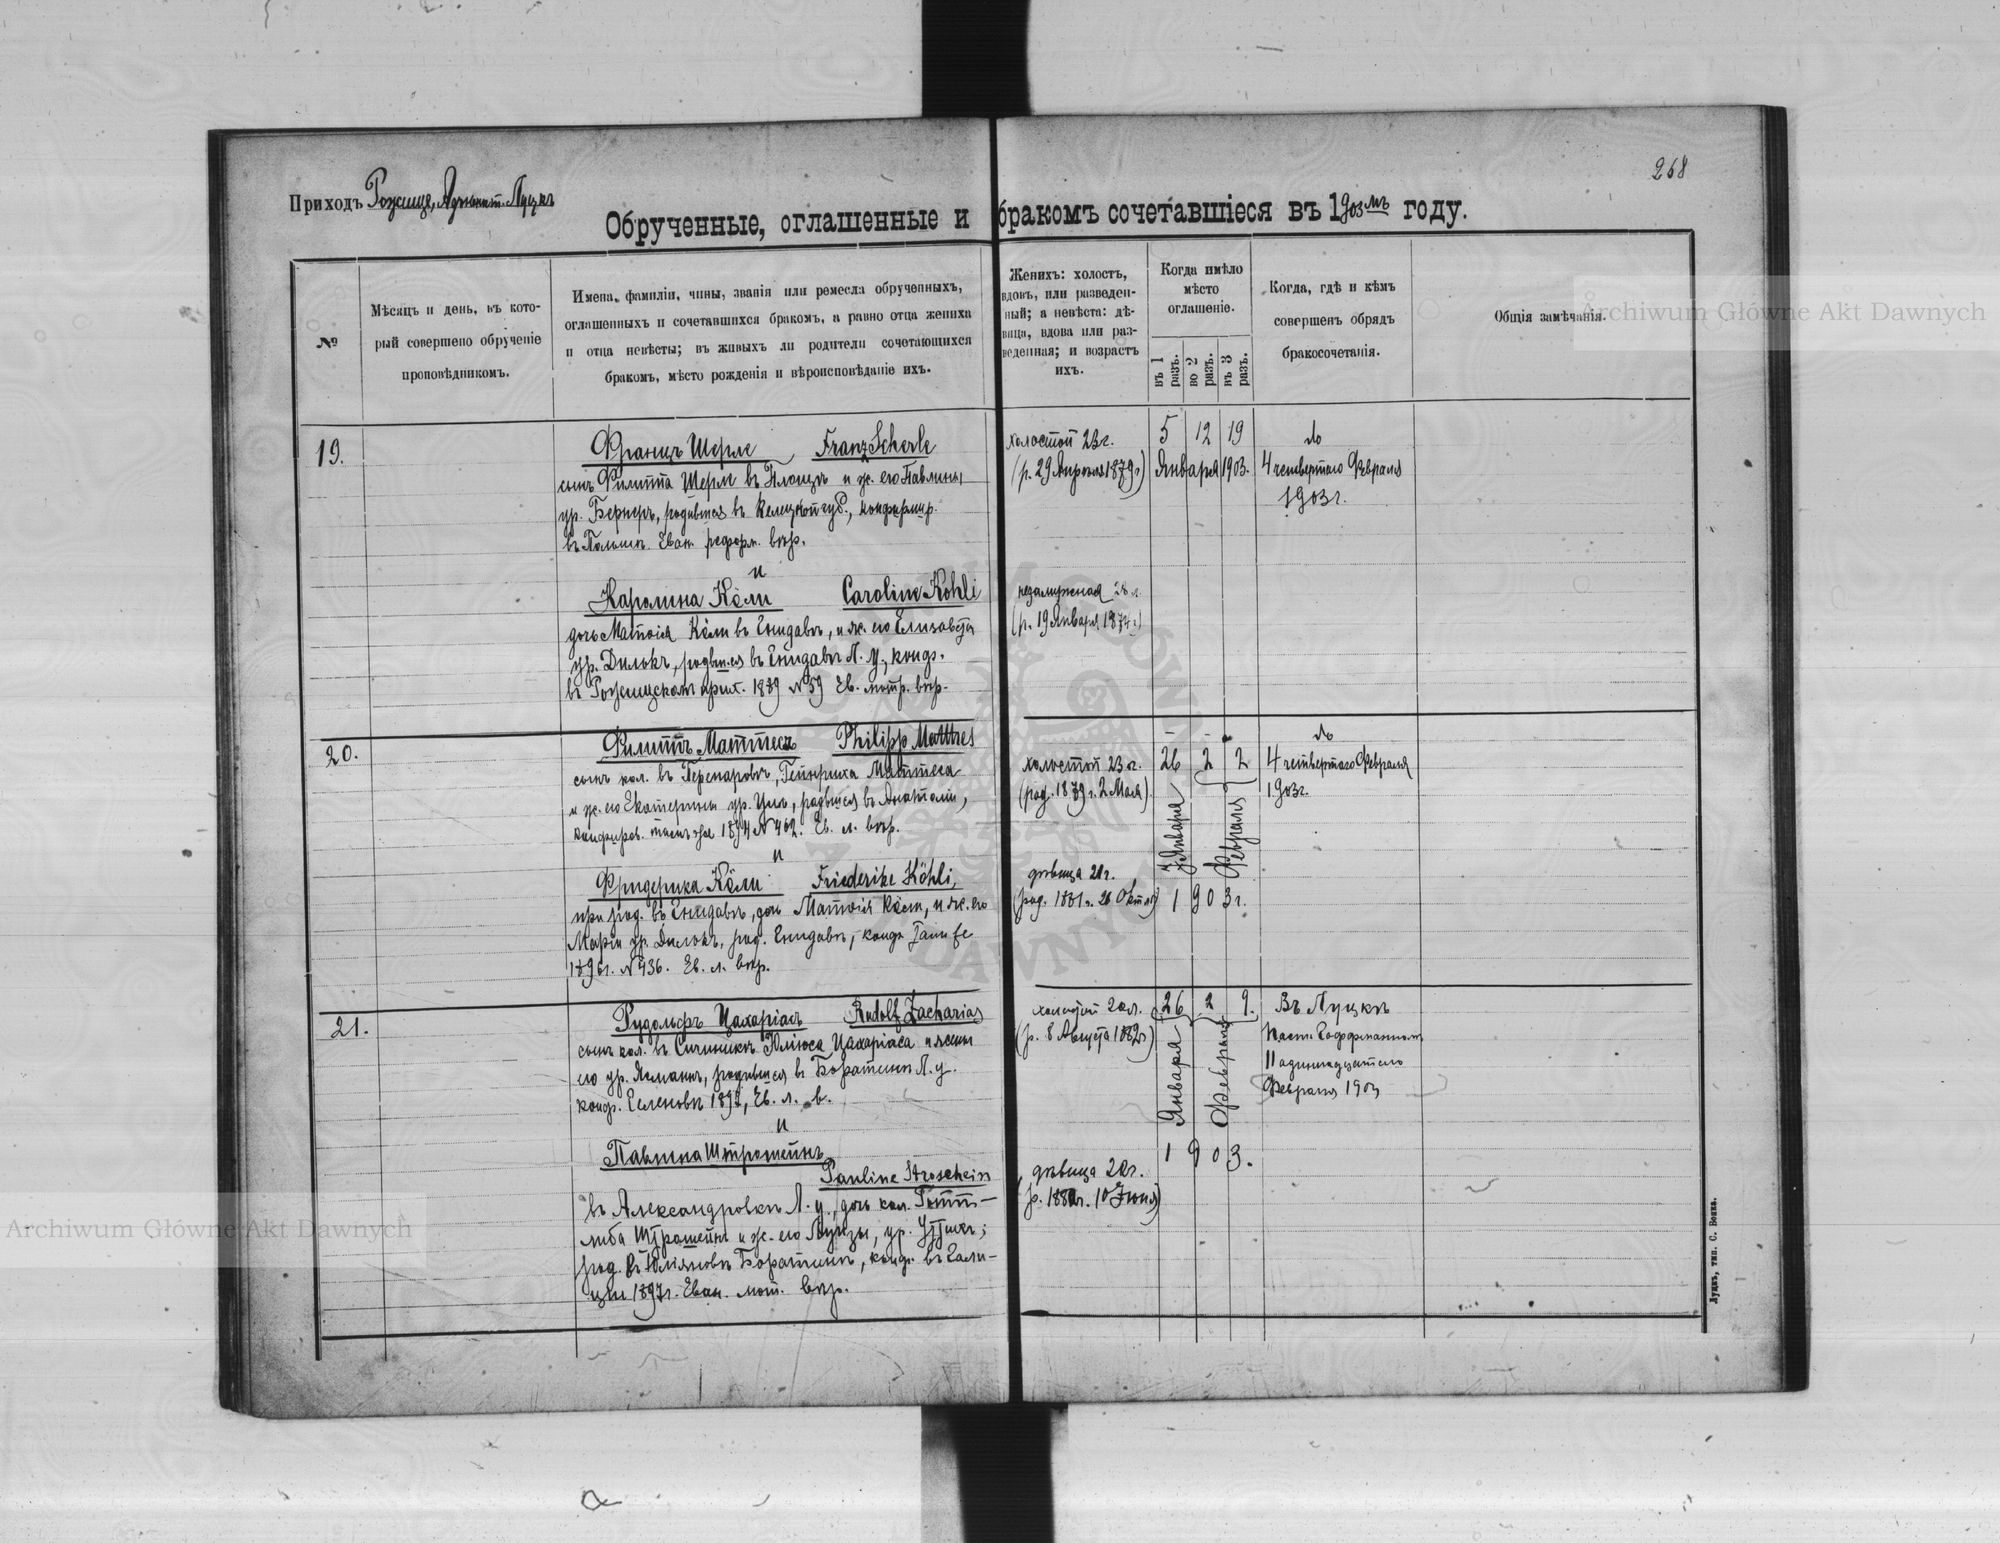 268
Приходъ Рожище, Адъюнкт. Луцкъ
Обрученные, оглашенные и бракомъ сочетавшіеся въ 1903мъ году.
№
Мѣсяцъ и день, въ кото-
рый совершено обрученіе
проповѣдникомъ.
Имена, фамиліи, чины, званія или ремесла обрученныхъ,
оглашенныхъ и сочетавшихся бракомъ, а равно отца жениха
и отца невѣсты; въ живыхъ ли родители сочетающихся
бракомъ, мѣсто рожденія и вѣроисповѣданіе ихъ.
Женихъ: холостъ,
вдовъ, или разведен-
ный; а невѣста: дѣ-
вица, вдова или раз-
веденная; и возрастъ
ихъ.
Когда имѣло
мѣсто
оглашеніе.
въ 1 разъ.
во 2 разъ.
въ 3 разъ.
Когда, гдѣ и кѣмъ
совершенъ обрядъ
бракосочетанія.
Общія замѣчанія.
19.
Францъ Шерле Franz Scherle
сынъ Филиппа Шерле въ и ж. его Павлины,
ур. Бернеръ, родившся въ Келецкой губ., конфирмир.
въ Польшѣ. Еван. реформ. вѣр.
и
Каролина Кёли Caroline Köhli
дочь Матвія Кёли въ Енидавѣ, и ж. его Елизавета
ур. Дилокъ, въ Енидавѣ Л. у., конф.
въ Рожищскомъ прих. 1889 № 59 Ев. лютр. вѣр.
холостой 23 г.
(р. 29 Апрѣля 1879 г)
незамужная 28 л.
(р. 19 Января 1874 г.)
5 12 19
Января 1903.
4 четвертаго Февраля
1903 г.
20.
Филиппъ Маттесъ Philipp Matthes
сынъ кол. въ Гейнриха Маттеса
и ж. его Екатерины ур. родвшся въ Анатоліи,
конфиров. тамъ же № 462. Ев. л. вѣр.
и
Фридерика Кёли Friederike Köhli,
въ Енидавѣ, дочь Матвія Кёли, и ж. его
Маріи ур. Дилокъ, род. Енидавѣ, конф.
1896 г. № 436. Ев. л. вѣр.
холостой 23 г.
(род. 1879 г. 2 Мая).
дѣвица 21 г.
(род. 1881 г. 26 Октяб)
26 2 2
Января Февраля
1903 г.
4 четвертаго Февраля
1903 г.
21.
Рудольфъ Цахаріасъ Rudolf Zacharias
сынъ кол. въ Юліюса Цахаріаса и жены
его ур. родившся въ Боратинѣ Л. у.
конф. Ев. л. в.
и
Павлина Штрошейнъ
Pauline Stroschein
въ Александровкѣ Л. у., дочь кол. Готт-
либа Штрошейнъ и ж. его Луизы, ур.
род. въ Юліяновкѣ Боратинѣ, конф. въ Гали-
ціи 1897 г. Еван. лют. вѣр.
холостой 20 л.
(р. 8 Августа 1882 г)
дѣвица 20 г.
(р. 1882 г. 10 Іюня)
26 2 9.
Января Февраля
1903.
Въ Луцкѣ
11 одиннадцатаго
Февраля 1903
Луцкъ, тип. С. Бонка.
Archiwum Główne Akt Dawnych
Archiwum Główne Akt Dawnych